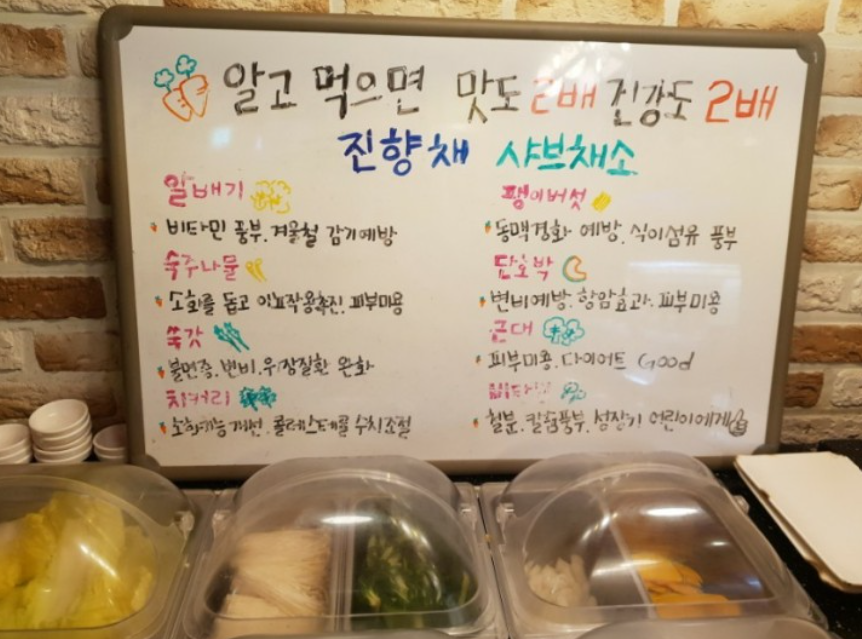 알고 먹으면 맛도 2배 건강도 2배
진향채 샤브채소
알배기
비타민 풍부. 겨울철 감기예방
숙주나물
소화를 돕고 이뇨작용촉진. 피부미용
쑥갓
불면증. 변비. 위장질환 완화
치커리
소화기능개선. 콜레스테롤 수치조절
팽이버섯
동맥경화 예방. 식이섬유 풍부
단호박
변비예방. 항암효과. 피부미용
근대
피부미용. 다이어트 Good
비타민
철분. 칼슘풍부. 성장기 어린이에게